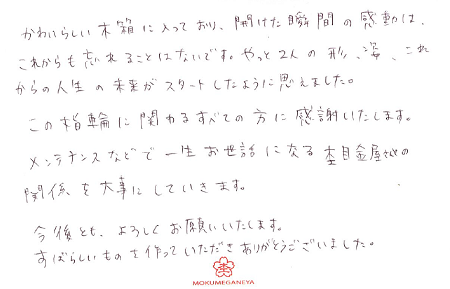 かわいらしい木箱に入っており、開けた瞬間の感動は、
これからも忘れることはないです。やっと2人の形、姿、これ
からの人生の未来がスタートしたように思えました。
この指輪に関わるすべての方に感謝いたします。
メンテナンスなどで一生お世話になる杢目金屋さんの
関係を大事にしていきます。
今後とも、よろしくお願いいたします。
すばらしいものを作っていただきありがとうございました。
杢
MOKUMEGANEYA